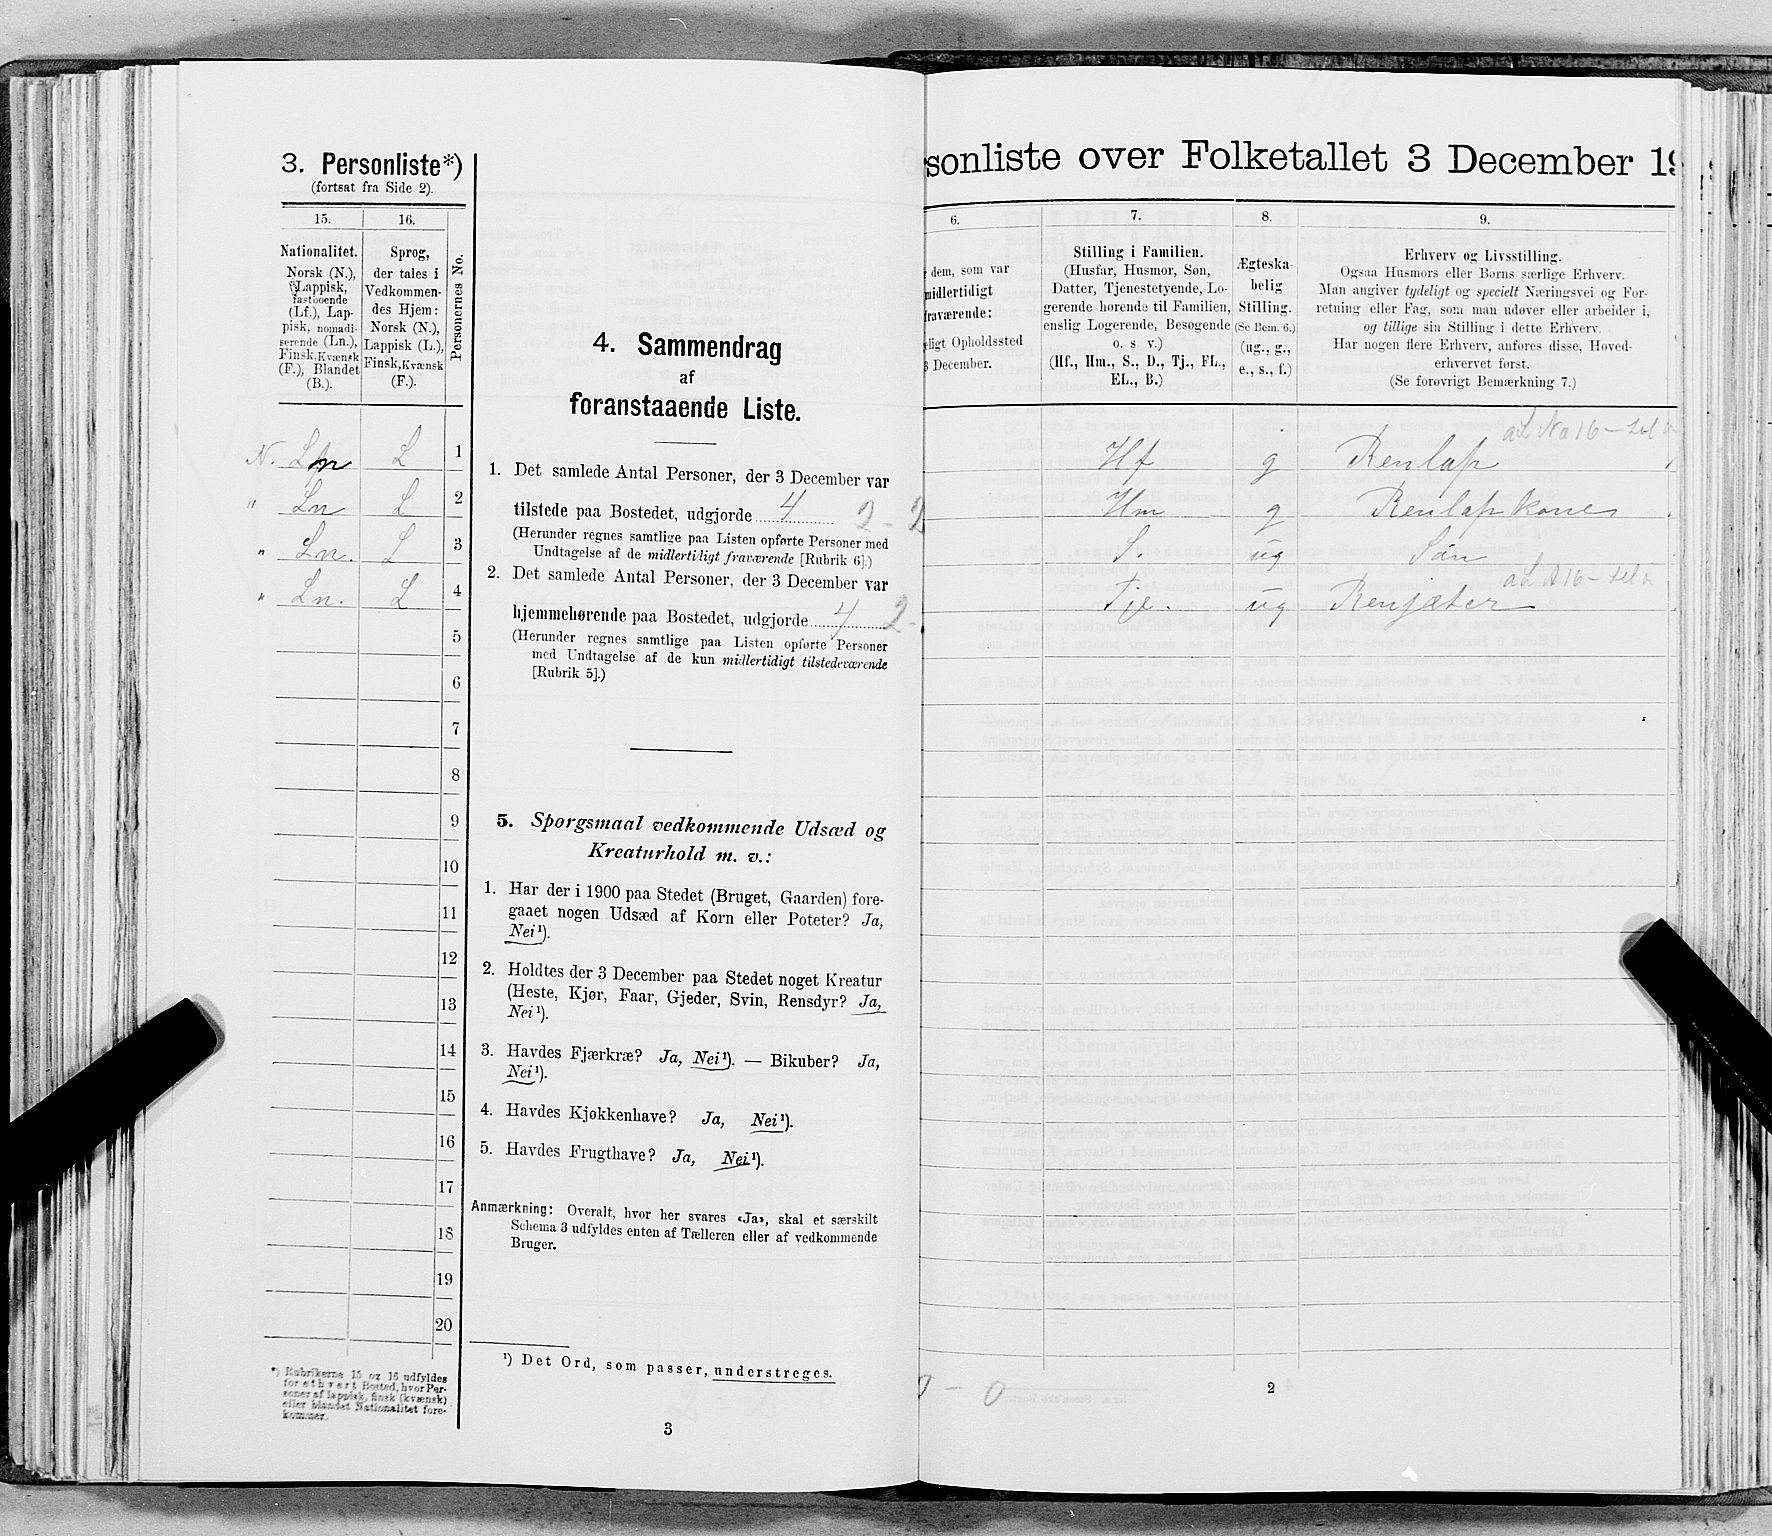 3. Personliste*)
(fortsat fra Side 2).
15.
16.
Personernes No.
Nationalitet.
Norsk (N.),
Lappisk,
fastboende
(Lf.), Lap-
pisk, nomadi-
serende (Ln.),
Finsk, Kvænsk
(F.), Blandet
(B.).
Sprog,
der tales i
Vedkommen-
des Hjem:
Norsk (N.),
Lappisk (L.),
Finsk, Kvænsk
(F.).
N. Ln L 1
" Ln L 2
" Ln. L 3
" Ln. L 4
5
6
7
8
9
10
11
12
13
14
15
16
17
18
19
20
*) Rubrikerne 15 og 16 udfyldes
for ethvert Bosted, hvor Per-
soner af lappisk, finsk (kvænsk)
eller blandet Nationalitet fore-
kommer.
4. Sammendrag
af
foranstaaende Liste.
1. Det samlede Antal Personer, der 3 December var
tilstede paa Bostedet, udgjorde 4 2-2
(Herunder regnes samtlige paa Listen opførte Personer med
Undtagelse af de midlertidigt fraværende [Rubrik 6].)
2. Det samlede Antal Personer, der 3 December var
hjemmehørende paa Bostedet, udgjorde 4 2-
(Herunder regnes samtlige paa Listen opførte Personer
med Undtagelse af de kun midlertidigt tilstedeværende
[Rubrik 5].)
5. Spørgsmaal vedkommende Udsæd og
Kreaturhold m. v.:
1. Har der i 1900 paa Stedet (Bruget, Gaarden) fore-
gaaet nogen Udsæd af Korn eller Poteter? Ja,
Nei¹).
2. Holdtes der 3 December paa Stedet noget Kreatur
(Heste, Kjør, Faar, Gjeder, Svin, Rensdyr? Ja,
Nei¹).
3. Havdes Fjærkræ? Ja, Nei¹). — Bikuber? Ja,
Nei¹).
4. Havdes Kjøkkenhave? Ja, Nei¹).
5. Havdes Frugthave? Ja, Nei¹).
Anmærkning: Overalt, hvor her svares «Ja», skal et særskilt
Schema 3 udfyldes enten af Tælleren eller af vedkommende
Bruger.
¹) Det Ord, som passer, understreges.
3
sonliste over Folketallet 3 December 19
6.
7.
8.
9.
dem, som var
midlertidigt
fraværende:
ligt Opholdssted
3 December.
Stilling i Familien.
(Husfar, Husmor, Søn,
Datter, Tjenestetyende, Lo-
gerende hørende til Familien,
enslig Logerende, Besøgende
o. s. v.)
(Hf., Hm., S., D., Tj., FL.,
EL., B.)
Ægteska-
belig
Stilling.
(Se Bem. 6.)
(ug., g.,
e., s., f.)
Erhverv og Livsstilling.
Ogsaa Husmors eller Børns særlige Erhverv.
Man angiver tydeligt og specielt Næringsvei og For-
retning eller Fag, som man udøver eller arbeider i,
og tillige sin Stilling i dette Erhverv.
Har nogen flere Erhverv, anføres disse, Hoved-
erhvervet først.
(Se forøvrigt Bemærkning 7.)
Hf g Renlap
Hm g Renlapkone
S. ug Søn
Tje. ug Rengjæter
0 - 0
2